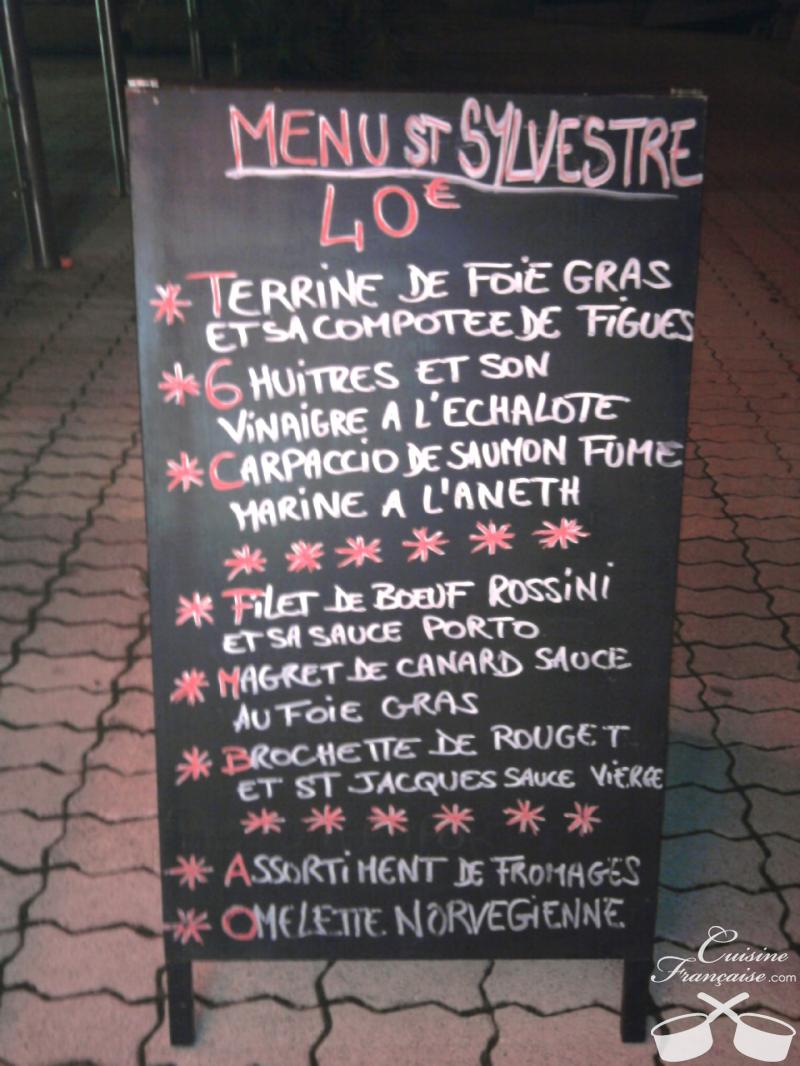 MENU ST SYLVESTRE
40€
* TERRINE DE FOIE GRAS
ET SA COMPOTEE DE FIGUES
* 6 HUITRES ET SON
VINAIGRE A L'ECHALOTE
* CARPACCIO DE SAUMON FUME
MARINE A L'ANETH
* * * * * *
* FILET DE BOEUF ROSSINI
ET SA SAUCE PORTO
* MAGRET DE CANARD SAUCE
AU FOIE GRAS
* BROCHETTE DE ROUGET
ET ST JACQUES SAUCE VIERGE
* * * * * *
* ASSORTIMENT DE FROMAGES
* OMELETTE NORVEGIENNE
Cuisine
Française.com